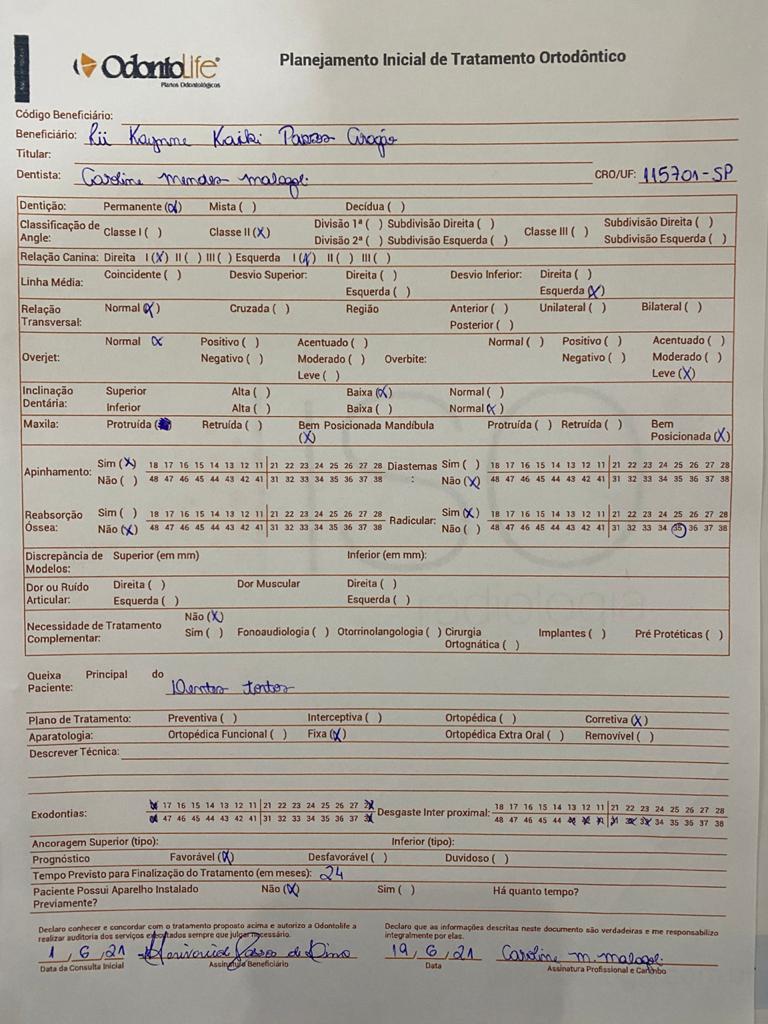 OdontoLife®
Planos Odontológicos
Planejamento Inicial de Tratamento Ortodôntico
Código Beneficiário:
Beneficiário: Kaynne Kaiki Passos
Titular:
Dentista: Caroline Mendes Malagoli CRO/UF: 115701-SP
Dentição: Permanente (X) Mista ( ) Decídua ( )
Classificação de Angle: Classe I ( ) Classe II (X) Divisão 1ª ( ) Subdivisão Direita ( ) Classe III ( ) Subdivisão Direita ( )
Divisão 2ª ( ) Subdivisão Esquerda ( ) Subdivisão Esquerda ( )
Relação Canina: Direita I (X) II ( ) III ( ) Esquerda I (X) II ( ) III ( )
Linha Média: Coincidente ( ) Desvio Superior: Direita ( ) Desvio Inferior: Direita ( )
Esquerda ( ) Esquerda (X)
Relação Transversal: Normal (X) Cruzada ( ) Região Anterior ( ) Unilateral ( ) Bilateral ( )
Posterior ( )
Overjet: Normal (X) Positivo ( ) Acentuado ( ) Overbite: Normal ( ) Positivo ( ) Acentuado ( )
Negativo ( ) Moderado ( ) Negativo ( ) Moderado ( )
Leve ( ) Leve (X)
Inclinação Dentária: Superior Alta ( ) Baixa (X) Normal ( )
Inferior Alta ( ) Baixa ( ) Normal (X)
Maxila: Protruída ( ) Retruída ( ) Bem Posicionada (X) Mandíbula Protruída ( ) Retruída ( ) Bem Posicionada (X)
Apinhamento: Sim (X) 18 17 16 15 14 13 12 11 21 22 23 24 25 26 27 28 Diastemas: Sim ( ) 18 17 16 15 14 13 12 11 21 22 23 24 25 26 27 28
Não ( ) 48 47 46 45 44 43 42 41 31 32 33 34 35 36 37 38 Não (X) 48 47 46 45 44 43 42 41 31 32 33 34 35 36 37 38
Reabsorção Óssea: Sim ( ) 18 17 16 15 14 13 12 11 21 22 23 24 25 26 27 28 Radicular: Sim (X) 18 17 16 15 14 13 12 11 21 22 23 24 25 26 27 28
Não (X) 48 47 46 45 44 43 42 41 31 32 33 34 35 36 37 38 Não ( ) 48 47 46 45 44 43 42 41 31 32 33 34 35 36 37 38
Discrepância de Modelos: Superior (em mm) Inferior (em mm):
Dor ou Ruído Articular: Direita ( ) Dor Muscular Direita ( )
Esquerda ( ) Esquerda ( )
Necessidade de Tratamento Complementar: Não (X)
Sim ( ) Fonoaudiologia ( ) Otorrinolangologia ( ) Cirurgia Ortognática ( ) Implantes ( ) Pré Protéticas ( )
Queixa Principal do Paciente: Dentes tortos
Plano de Tratamento: Preventiva ( ) Interceptiva ( ) Ortopédica ( ) Corretiva (X)
Aparatologia: Ortopédica Funcional ( ) Fixa (X) Ortopédica Extra Oral ( ) Removível ( )
Descrever Técnica:
Exodontias: 18 17 16 15 14 13 12 11 21 22 23 24 25 26 27 28 Desgaste Inter proximal: 18 17 16 15 14 13 12 11 21 22 23 24 25 26 27 28
48 47 46 45 44 43 42 41 31 32 33 34 35 36 37 38 48 47 46 45 44 43 42 41 31 32 33 34 35 36 37 38
Ancoragem Superior (tipo): Inferior (tipo):
Prognóstico Favorável (X) Desfavorável ( ) Duvidoso ( )
Tempo Previsto para Finalização do Tratamento (em meses): 24
Paciente Possui Aparelho Instalado Previamente? Não (X) Sim ( ) Há quanto tempo?
Declaro conhecer e concordar com o tratamento proposto acima e autorizo a Odontolife a
realizar auditoria dos serviços executados sempre que julgar necessário.
Declaro que as informações descritas neste documento são verdadeiras e me responsabilizo
integralmente por elas.
1, 6, 21 Passos de Lima 19, 6, 21 Caroline M. Malagoli
Data da Consulta Inicial Assinatura Beneficiário Data Assinatura Profissional e Carimbo